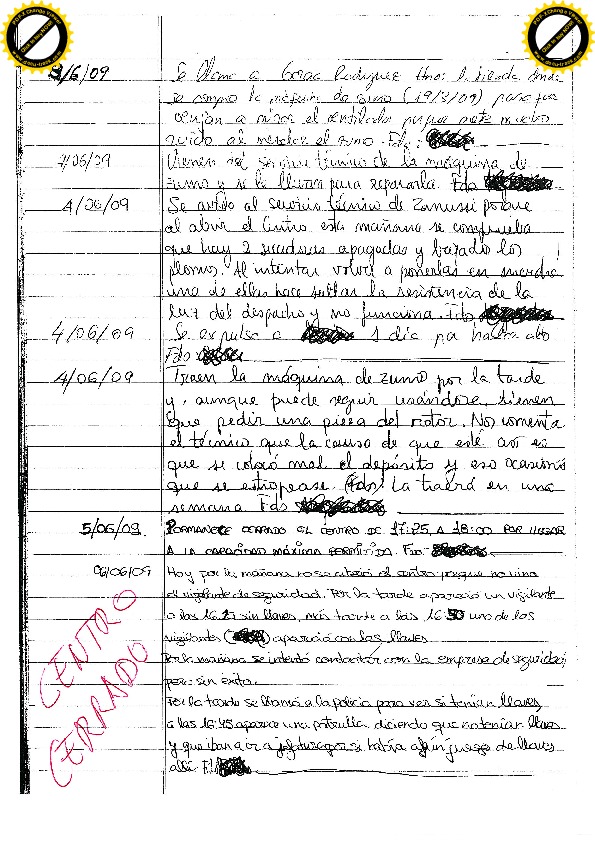 3/6/09 Se llama a Rodríguez Hnos. la tienda donde
se compro la máquina de zumo (19/3/09) para que
vengan a mirar el ventilador porque mete mucho
ruido al meterlo el zumo. Fdo:
4/06/09 Vienen del servicio técnico de la máquina de
zumo y se la llevan para repararla. Fdo
4/06/09 Se avisó al servicio técnico de Zanussi porque
al abrir el Centro esta mañana se comprueba
que hay 2 secadoras apagadas y bajado los
plomos. Al intentar volver a ponerlas en marcha
una de ellas hace saltar la resistencia de la
luz del despacho y no funciona. Fdo
4/06/09 Se expulsa a 1 día por
Fdo:
4/06/09 Traen la máquina de zumo por la tarde
y, aunque puede seguir usándose, tienen
que pedir una pieza del motor. Nos comenta
el técnico que la causa de que esté así es
que se colocó mal el depósito y eso ocasionó
que se estropease. (Fdo) La traerá en una
semana. Fdo
5/06/09 PERMANECE CERRADO EL CENTRO DE 17:25 A 18:00 POR LLEGAR
A LA CAPACIDAD MÁXIMA PERMITIDA. Fdo:
06/06/09 Hoy por la mañana no se abrió el centro porque no vino
el vigilante de seguridad. Por la tarde apareció un vigilante
a las 16:25 sin llaves, más tarde a las 16:50 uno de los
vigilantes ( ) apareció con las llaves.
Por la mañana se intentó contactar con la empresa de seguridad,
pero sin éxito.
Por la tarde se llamó a la policía para ver si tenían llaves,
a las 16:45 aparece una patrulla diciendo que no tenían llaves
y que iban a ir a jefatura por si había algún juego de llaves
allí. Fdo
CENTRO
CERRADO